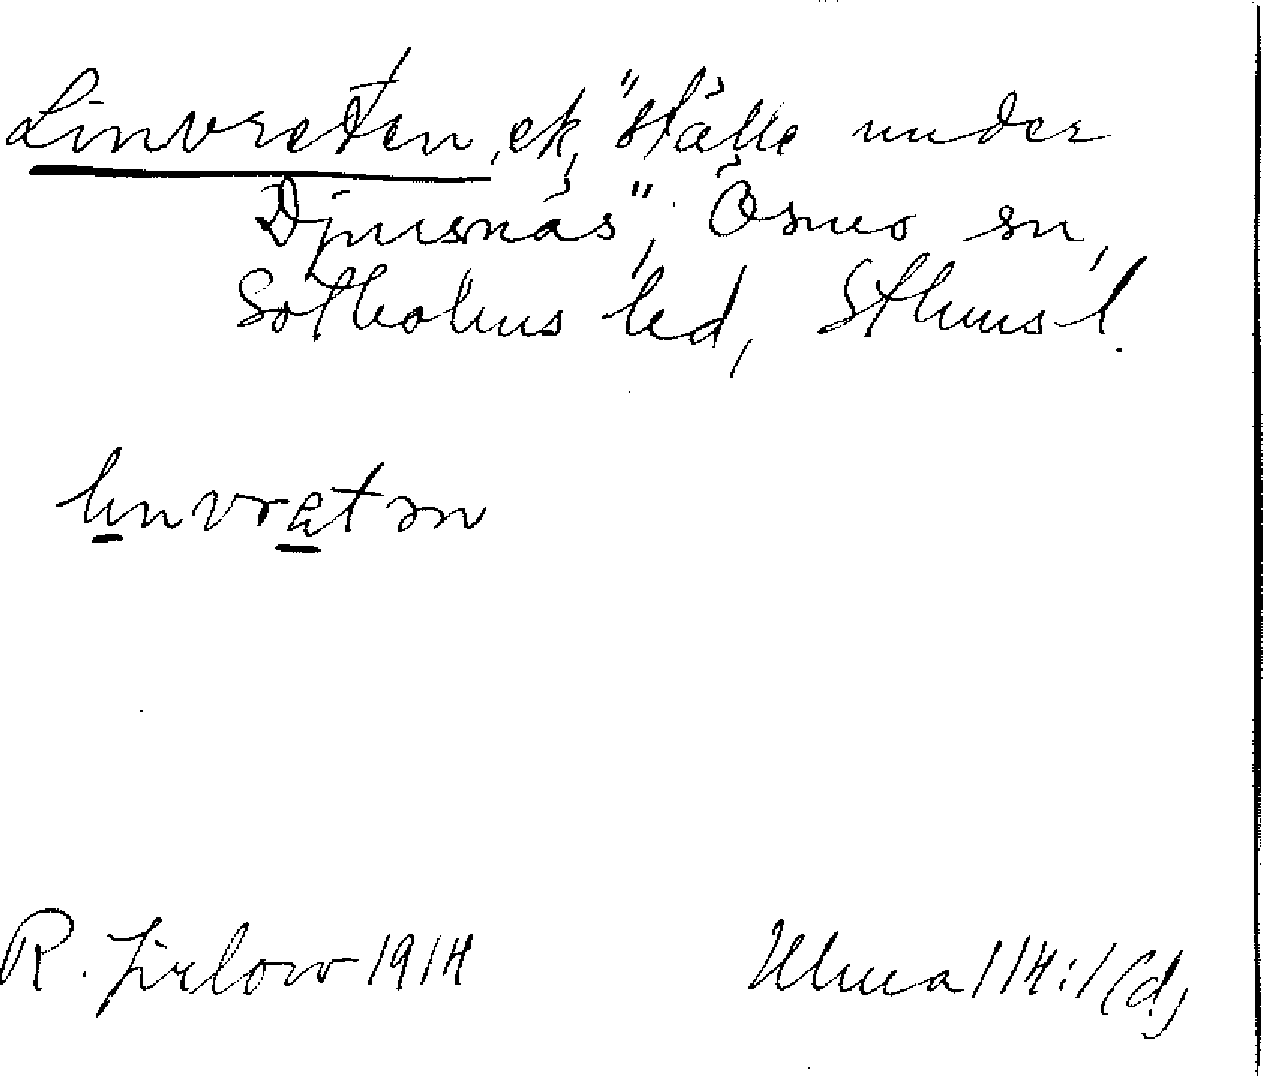 Linvreten, ek, "Hälle under
Djursnäs", Ösmo sn,
Sotholms hd, Sthms l.
linvretən
R. Jirlow 1914
Ulma 114:1 (d)